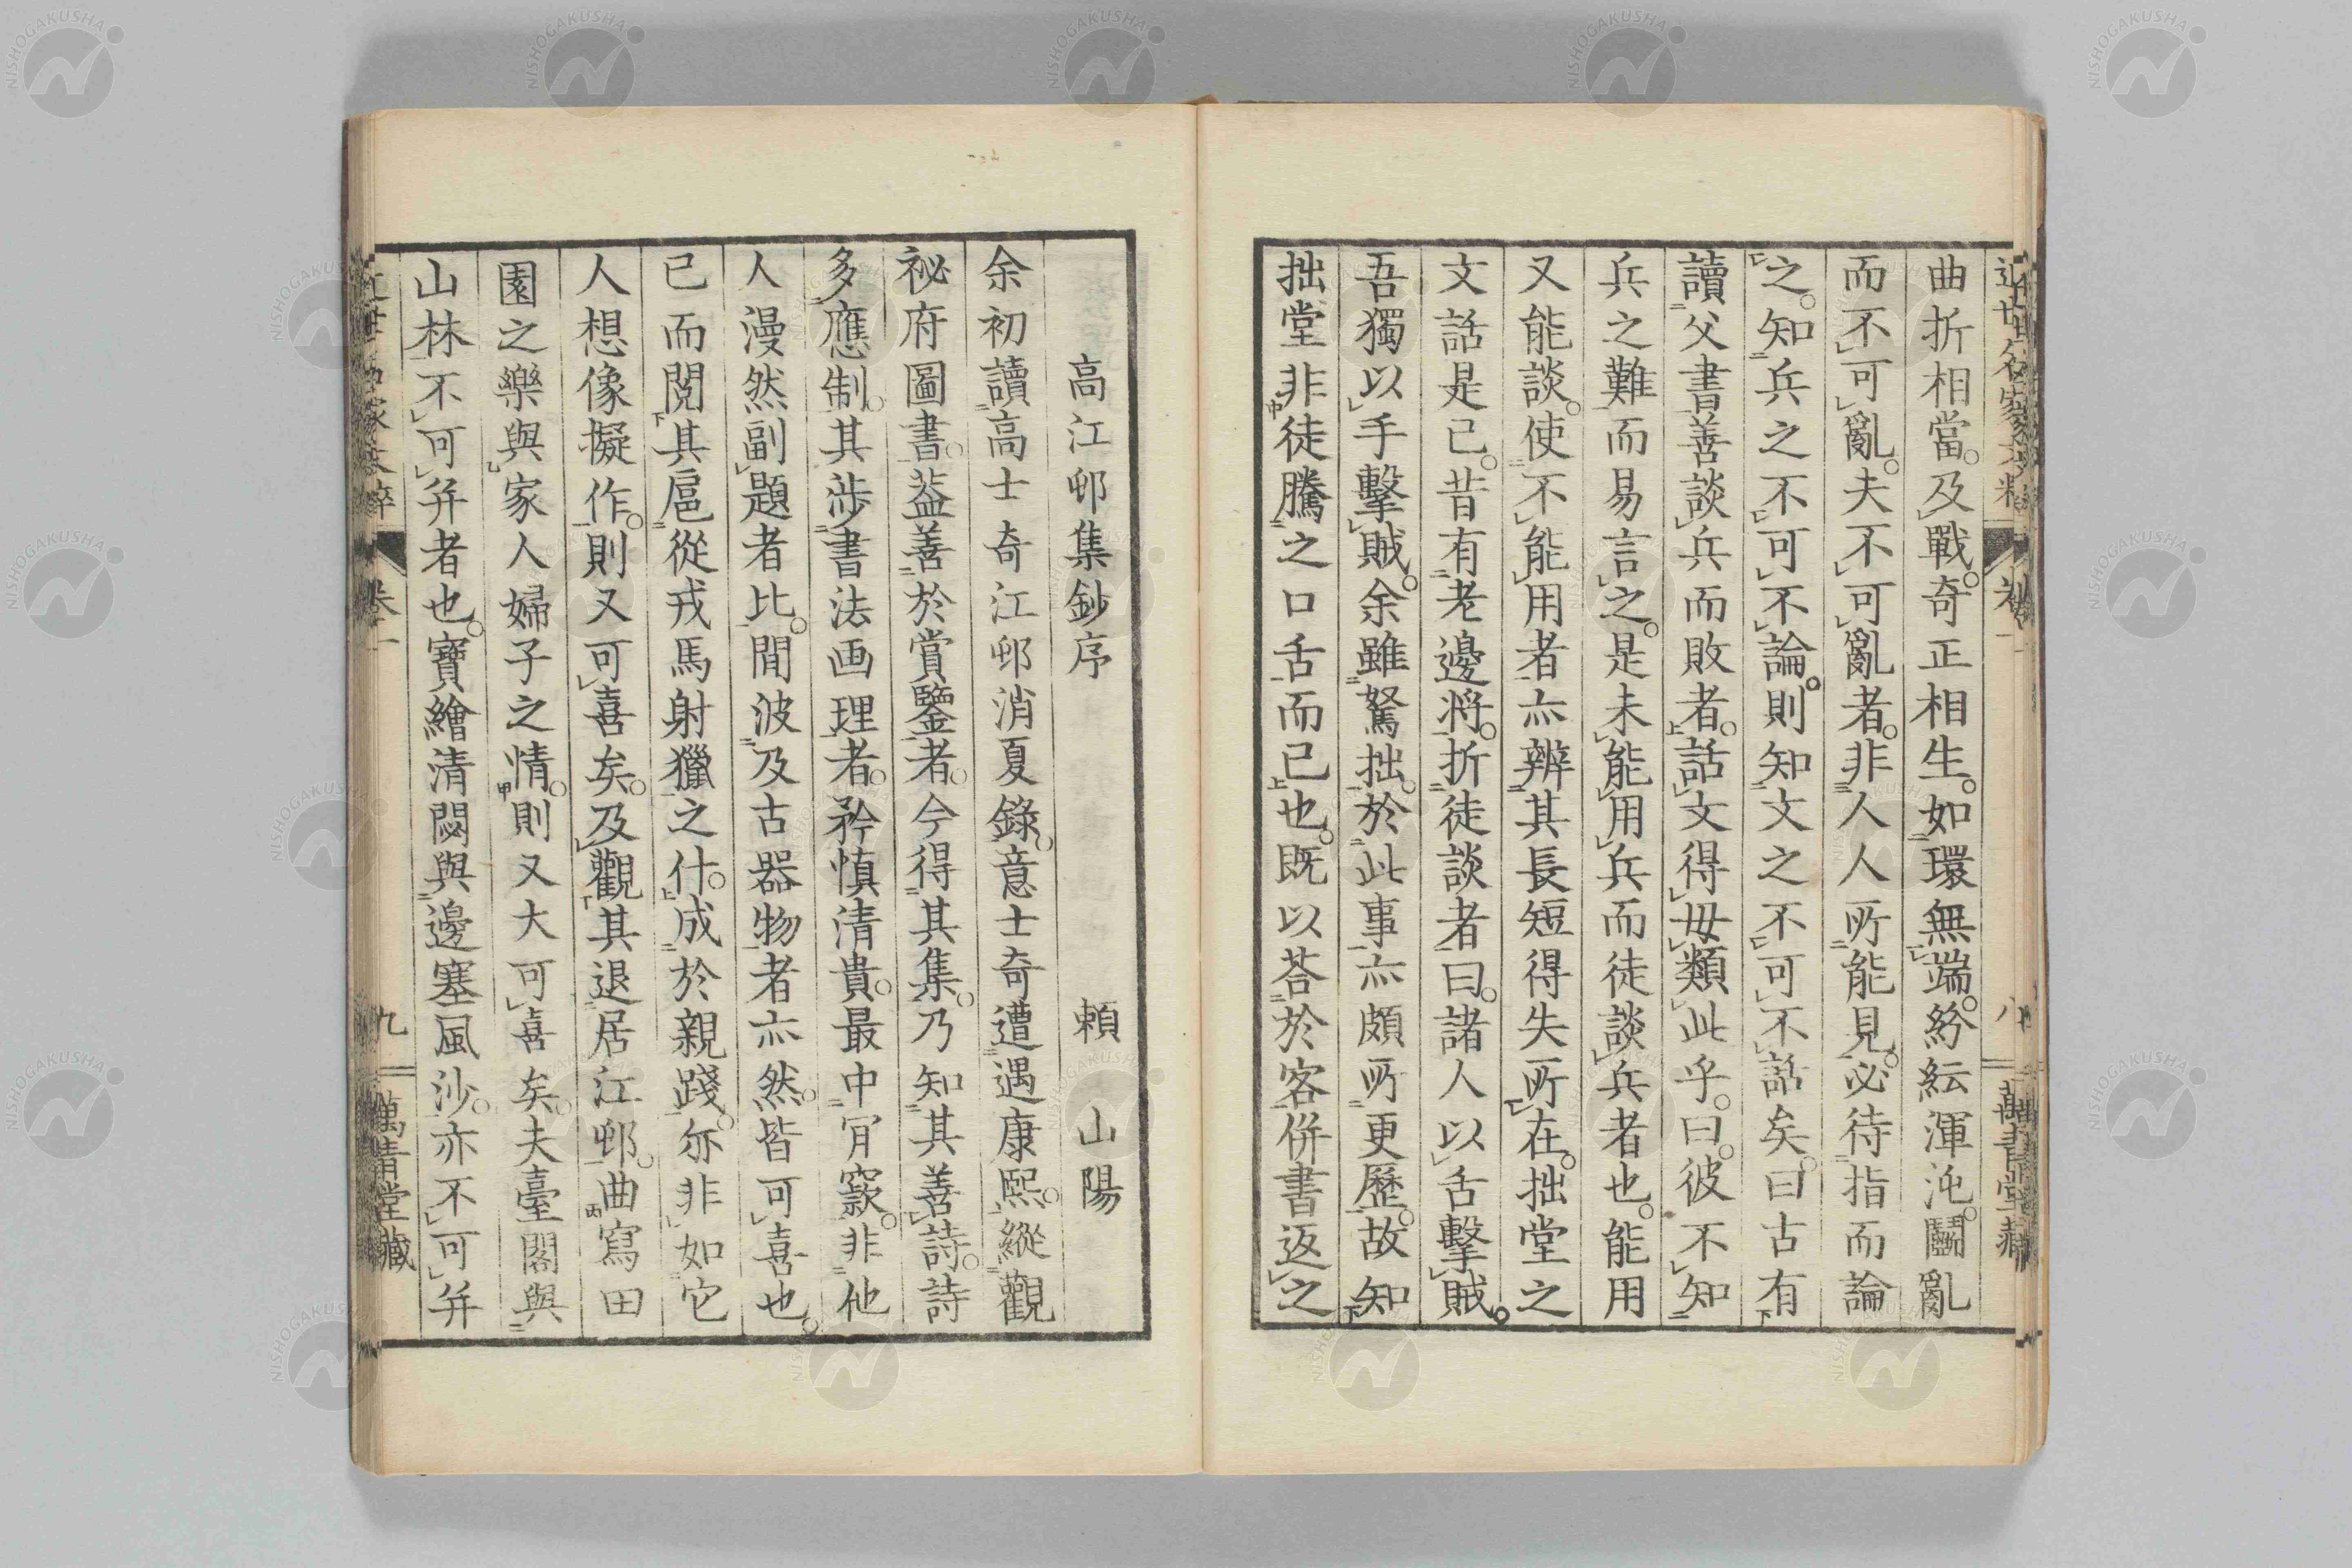 近世名家文粹 卷一 八 萬青堂藏
曲折相當。及戰。奇正相生。如環無端。紛紜渾沌。鬪亂
而不可亂。夫不可亂者。非人人所能見。必待指而論
之。知兵之不可不論。則知文之不可不話矣。曰古有
讀父書善談兵而敗者。話文得毋類此乎。曰。彼不知
兵之難而易言之。是未能用兵而徒談兵者也。能用
又能談。使不能用者亦辨其長短得失所在。拙堂之
文話是已。昔有老邊將。折徒談者曰。諸人以舌擊賊。
吾獨以手擊賊。余雖駑拙。於此事亦頗所更歷。故知
拙堂非徒騰之口舌而已也。既以荅於客併書返之
高江邨集鈔序 賴山陽
余初讀高士奇江邨消夏錄。意士奇遭遇康熙。縱觀
祕府圖書。葢善於賞鑒者。今得其集。乃知其善詩。詩
多應制。其涉書法画理者。矜慎清貴。最中肎窾。非他
人漫然副題者比。間波及古器物者亦然。皆可喜也。
已而閱其扈從戎馬射獵之什。成於親踐。亦非如它
人想像擬作。則又可喜矣。及觀其退居江邨。曲寫田
園之樂與家人婦子之情。則又大可喜矣。夫臺閣與
山林不可并者也。寶繪清閟與邊塞風沙。亦不可并
近世名家文粹 卷一 九 萬青堂藏
NISHOGAKUSHA